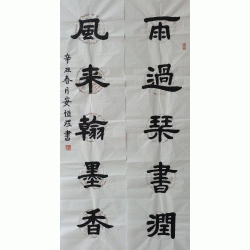 雨過琹書潤
風来翰墨香
辛丑春月安恒程書